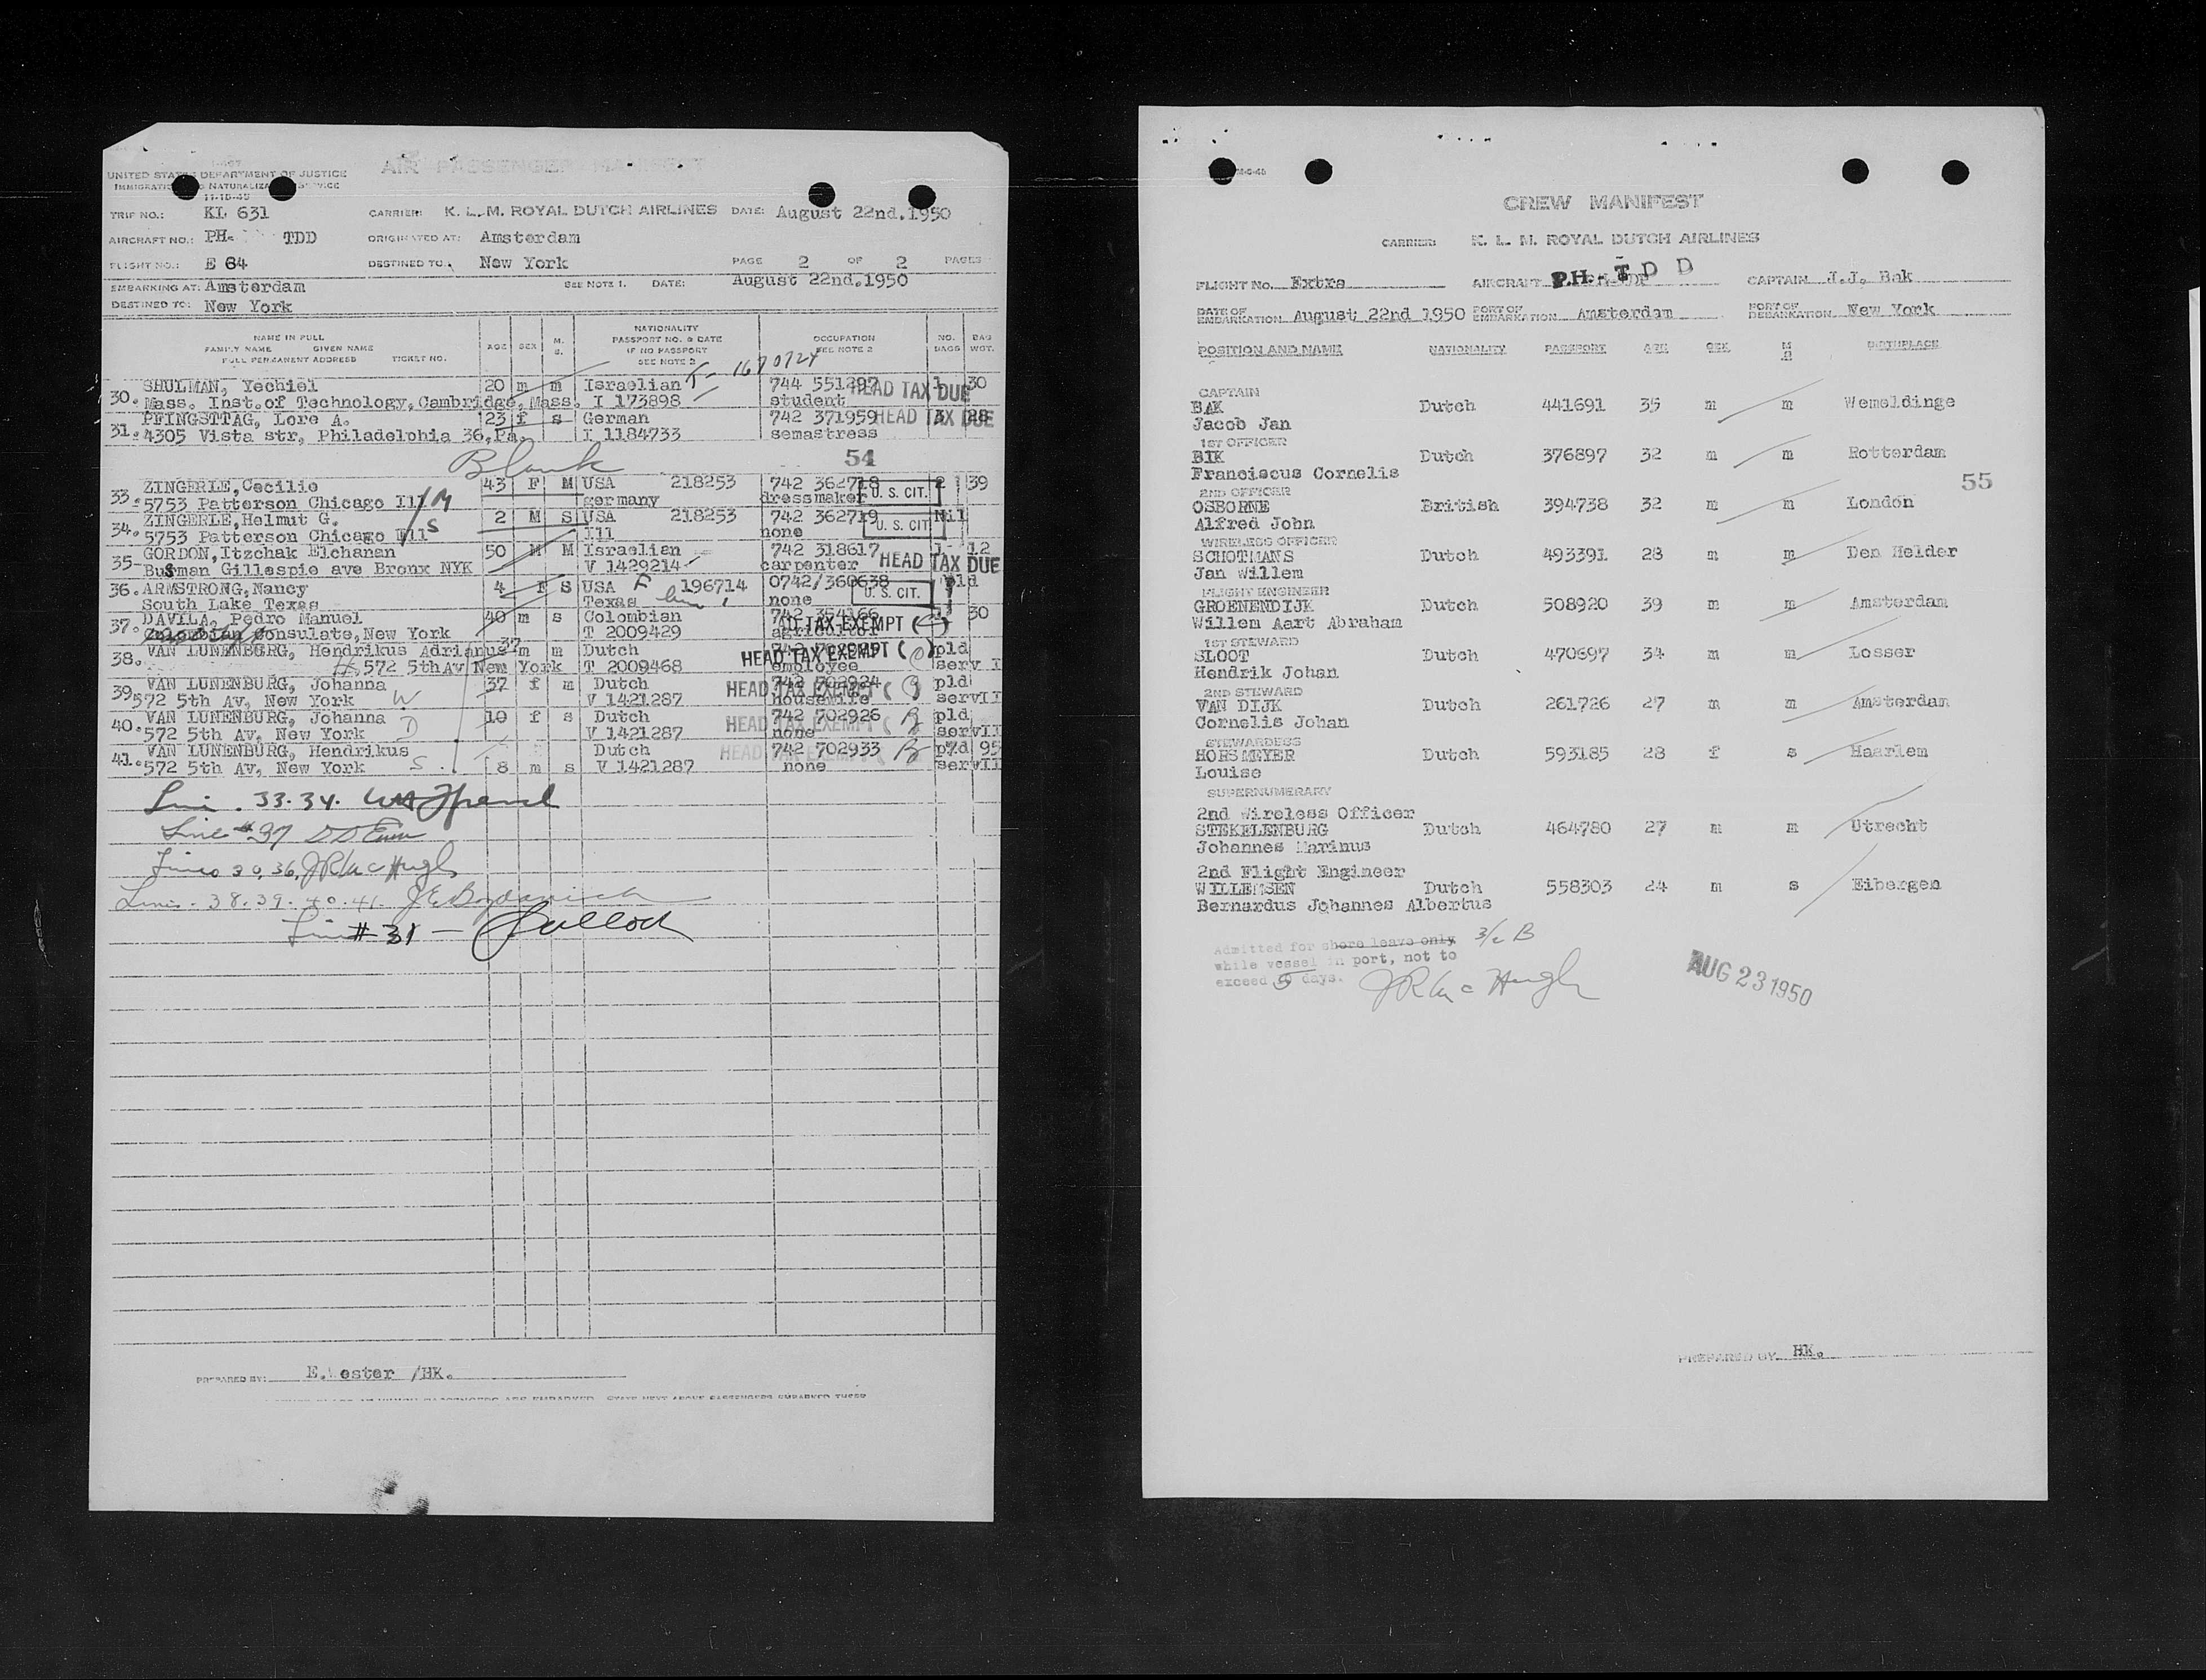 AIR PASSENGER MANIFEST
UNITED STATES DEPARTMENT OF JUSTICE
IMMIGRATION NATURALIZATION SERVICE
11-15-45
TRIP NO.: KL 631 CARRIER: K. L. M. ROYAL DUTCH AIRLINES DATE: August 22nd.1950
AIRCRAFT NO.: PH- TDD ORIGINATED AT: Amsterdam
FLIGHT NO.: E 64 DESTINED TO: New York PAGE 2 OF 2 PAGES
EMBARKING AT: Amsterdam SEE NOTE 1. DATE: August 22nd.1950
DESTINED TO: New York
NAME IN FULL
FAMILY NAME GIVEN NAME
FULL PERMANENT ADDRESS TICKET NO.
AGE SEX M. S.
NATIONALITY
PASSPORT NO. & DATE
IF NO PASSPORT
SEE NOTE 2
OCCUPATION
SEE NOTE 2
NO. BAGS
BAG WGT.
SHULMAN, Yechiel 20 m m Israelian 744 551297 1 30
30. Mass. Inst.of Technology,Cambridge,Mass. I 173898 student HEAD TAX DUE
PFINGSTTAG, Lore A. 23 f s German 742 371959 HEAD TAX DUE
31. 4305 Vista str, Philadelphia 36,Pa. I 1184733 semastress
Blank 54
ZINGERLE,Cecilie 43 F M USA 218253 742 362718 2 39
33. 5753 Patterson Chicago Ill M germany dressmaker U. S. CIT.
ZINGERLE,Helmut G. 2 M S USA 218253 742 362719 Nil
34. 5753 Patterson Chicago Ill S Ill none U. S. CIT.
GORDON,Itzchak Elchanan 50 M M Israelian 742 318617 1 12
35- Busman Gillespie ave Bronx NYK V 1429214 carpenter HEAD TAX DUE
36. ARMSTRONG,Nancy 4 F S USA 196714 0742/360638 pld
South Lake Texas Texas none U. S. CIT.
DAVILA, Pedro Manuel 40 m s Colombian 742 354166 30
37. Colombian Consulate,New York T 2009429 agricultor HEAD TAX EXEMPT
VAN LUNENBURG, Hendrikus Adrianus 37 m m Dutch pld
38. H. 572 5thAv New York T 2009468 employee HEAD TAX EXEMPT serv I
VAN LUNENBURG, Johanna 37 f m Dutch 742 702924 pld
39. 572 5th Av, New York W V 1421287 housewife HEAD TAX EXEMPT servII
VAN LUNENBURG, Johanna 10 f s Dutch 742 702926 pld
40. 572 5th Av, New York D V 1421287 none HEAD TAX EXEMPT servII
VAN LUNENBURG, Hendrikus Dutch 742 702933 pld 95
41. 572 5th Av, New York S 8 m s V 1421287 none HEAD TAX EXEMPT servII
33.34.
Line #37
Lines 30,36, JR McHugh
38.39.40.41.
#31 —
PREPARED BY: E. ester /HK.
CREW MANIFEST
CARRIER: K. L. M. ROYAL DUTCH AIRLINES
FLIGHT No. Extra AIRCRAFT PH-TDD CAPTAIN J.J. Bak
DATE OF EMBARKATION August 22nd 1950 PORT OF EMBARKATION Amsterdam PORT OF DEBARKATION New York
POSITION AND NAME NATIONALITY PASSPORT AGE SEX M S BIRTHPLACE
CAPTAIN
BAK Dutch 441691 35 m m Wemeldinge
Jacob Jan
1ST OFFICER
BIK Dutch 376897 32 m m Rotterdam
Franciscus Cornelis
55
2ND OFFICER
OSBORNE British 394738 32 m m London
Alfred John
WIRELESS OFFICER
SCHOTMANS Dutch 493391 28 m m Den Helder
Jan Willem
FLIGHT ENGINEER
GROENENDIJK Dutch 508920 39 m m Amsterdam
Willem Aart Abraham
1ST STEWARD
SLOOT Dutch 470697 34 m m Losser
Hendrik Johan
2ND STEWARD
VAN DIJK Dutch 261726 27 m m Amsterdam
Cornelis Johan
STEWARDESS
HORSMEYER Dutch 593185 28 f s Haarlem
Louise
SUPERNUMERARY
2nd Wireless Officer
STEKELENBURG Dutch 464780 27 m m Utrecht
Johannes Marinus
2nd Flight Engineer
WILLEMSEN Dutch 558303 24 m s Eibergen
Bernardus Johannes Albertus
Admitted for shore leave only
while vessel in port, not to
exceed days. JR McHugh
AUG 23 1950
PREPARED BY HK.